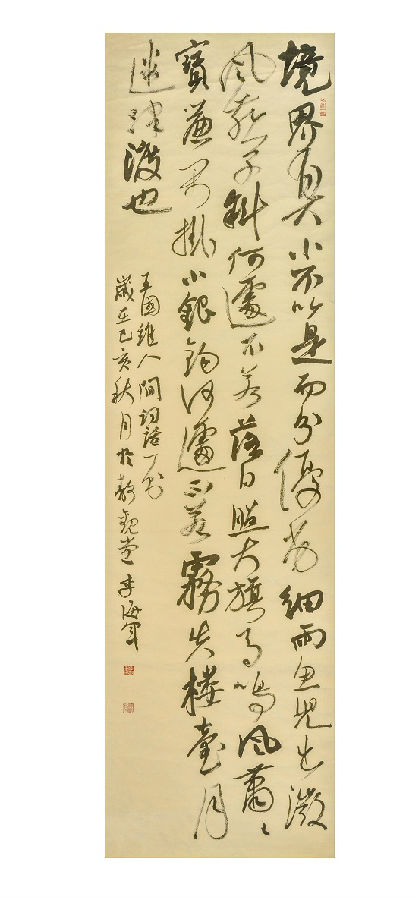 境界有大小不以是而分優劣細雨魚兒出微
風燕子斜何遽不若落日照大旗馬鳴風蕭〻
寶簾閒掛小銀鉤何遽不若霧失樓臺月
迷津渡也
王國維人間詞話一則
歲在己亥秋月於觀堂李海軍